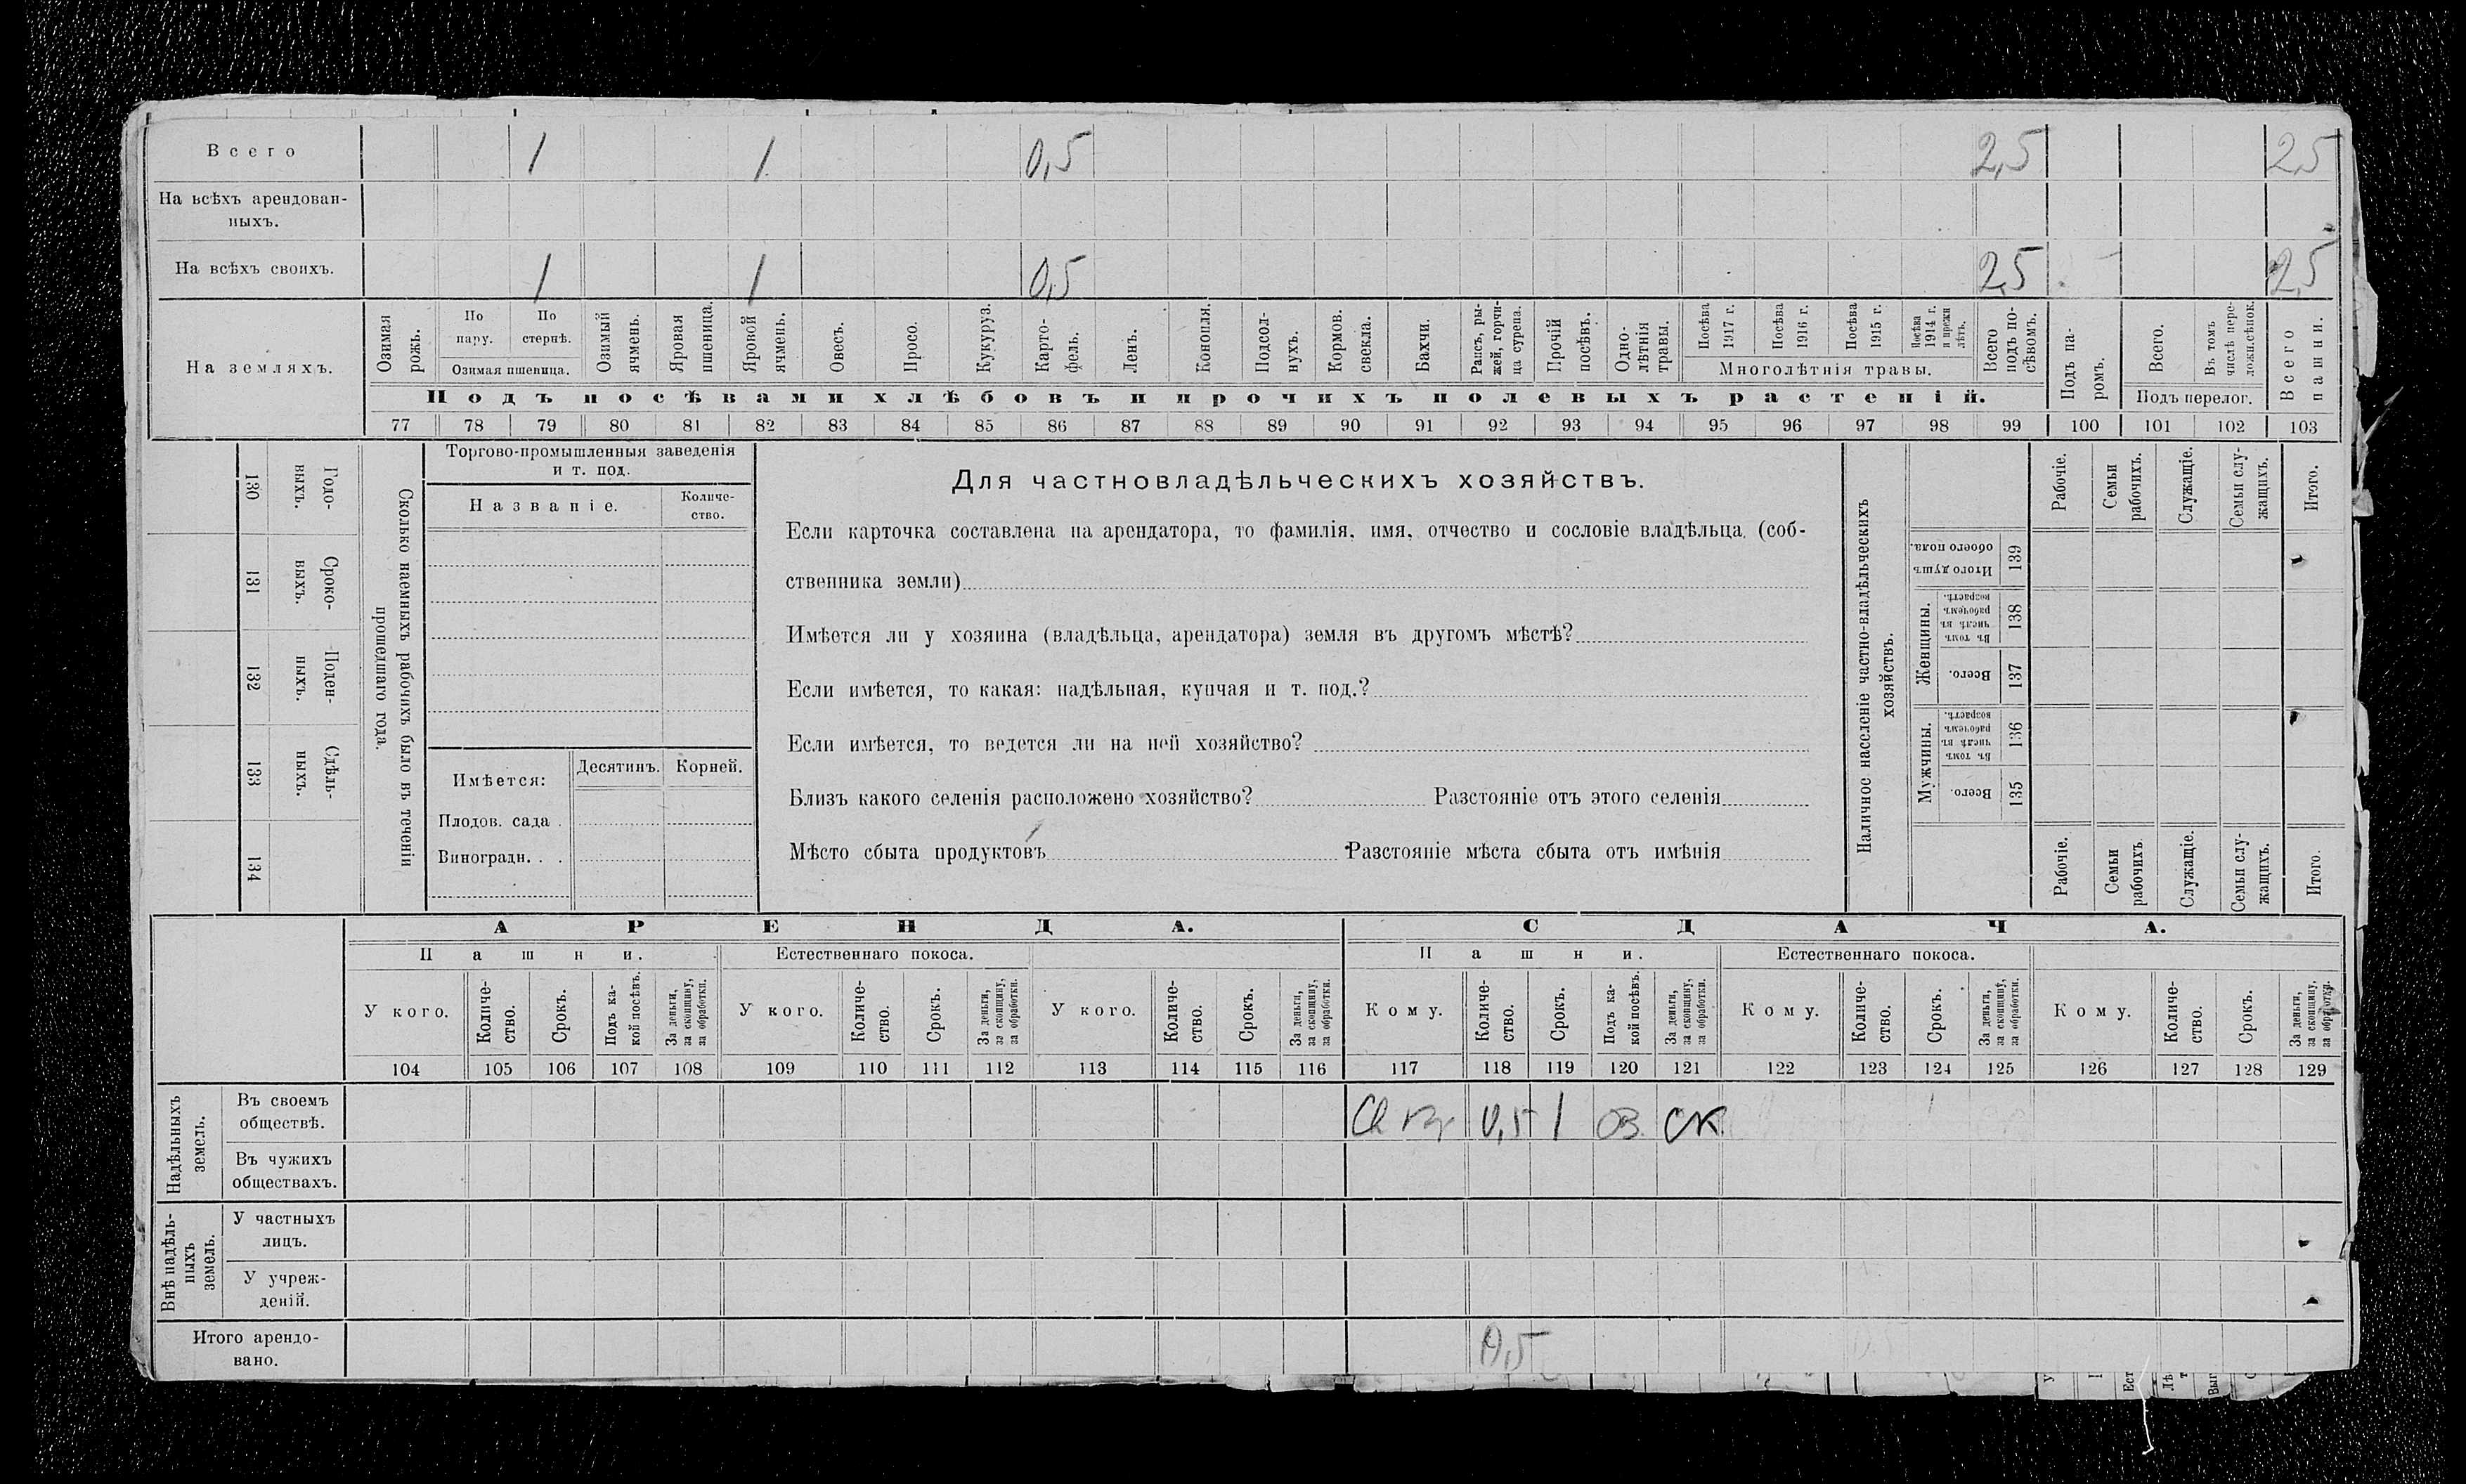 Всего 1 1 0,5 2,5 2,5
На всѣхъ арендован-
ныхъ.
На всѣхъ своихъ. 1 1 0,5 2,5 2,5
На земляхъ.
Озимая рожь.
По пару.
По стернѣ.
Озимая пшеница.
Озимый ячмень.
Яровая пшеница.
Яровой ячмень.
Овесъ.
Просо.
Кукуруз.
Карто-
фель.
Ленъ.
Конопля.
Подсол-
нухъ.
Кормов. свекла.
Бахчи.
Рапсъ, ры-
жей, горчи-
ца сурепа.
Прочій посѣвъ.
Одно-
лѣтнія травы.
Посѣва 1917 г.
Посѣва 1916 г.
Посѣва 1915 г.
Посѣва 1914 г. и прежн лѣтъ.
Многолѣтнія травы.
Всего подъ по-
сѣвомъ.
Подъ па-
ромъ.
Всего.
Въ томъ числѣ пере-
ложн.сѣнок.
Подъ перелог.
Всего пашни.
Подъ посѣвами хлѣбовъ и прочихъ полевыхъ растеній.
77 78 79 80 81 82 83 84 85 86 87 88 89 90 91 92 93 94 95 96 97 98 99 100 101 102 103
130 Годо-
выхъ.
131 Сроко-
выхъ.
132 Поден-
ныхъ.
133 Сдѣль-
ныхъ.
134
Сколько наемныхъ рабочихъ было въ теченіи
прошедшаго года.
Торгово-промышленныя заведенія
и т. под.
Названіе.
Количе-
ство.
Имѣется:
Десятинъ. Корней.
Плодов. сада .
Виноградн. . .
Для частновладѣльческихъ хозяйствъ.
Если карточка составлена на арендатора, то фамилія, имя, отчество и сословіе владѣльца, (соб-
ственника земли)
Имѣется ли у хозяина (владѣльца, арендатора) земля въ другомъ мѣстѣ?
Если имѣется, то какая: надѣльная, купчая и т. под.?
Если имѣется, то ведется ли на ней хозяйство?
Близъ какого селенія расположено хозяйство? Разстояніе отъ этого селенія
Мѣсто сбыта продуктовъ Разстояніе мѣста сбыта отъ имѣнія
Наличное населеніе частно-владѣльческихъ
хозяйствъ.
Рабочіе.
Семьи рабочихъ.
Служащіе.
Семьи слу-
жащихъ.
Итого.
Итого душъ обоего пола. 139
Женщины.
Въ томъ числѣ въ рабочемъ возрастѣ. 138
Всего. 137
Мужчины.
Въ томъ числѣ въ рабочемъ возрастѣ. 136
Всего. 135
Рабочіе.
Семьи рабочихъ.
Служащіе.
Семьи слу-
жащихъ.
Итого.
АРЕНДА. СДАЧА.
Пашни. Естественнаго покоса. Пашни. Естественнаго покоса.
У кого.
Количе-
ство.
Срокъ.
Подъ ка-
кой посѣвъ.
За деньги, за скопщину, за обработки.
У кого.
Количе-
ство.
Срокъ.
За деньги, за скопщину, за обработки.
У кого.
Количе-
ство.
Срокъ.
За деньги, за скопщину, за обработки.
Кому.
Количе-
ство.
Срокъ.
Подъ ка-
кой посѣвъ.
За деньги, за скопщину, за обработки.
Кому.
Количе-
ство.
Срокъ.
За деньги, за скопщину, за обработки.
Кому.
Количе-
ство.
Срокъ.
За деньги, за скопщину, за обработки.
104 105 106 107 108 109 110 111 112 113 114 115 116 117 118 119 120 121 122 123 124 125 126 127 128 129
Надѣльныхъ земель.
Въ своемъ
обществѣ. 0,5 1 ов ск
Въ чужихъ
обществахъ.
Внѣ надѣль-
ныхъ земель.
У частныхъ
лицъ.
У учреж-
деній.
Итого арендо-
вано. 0,5